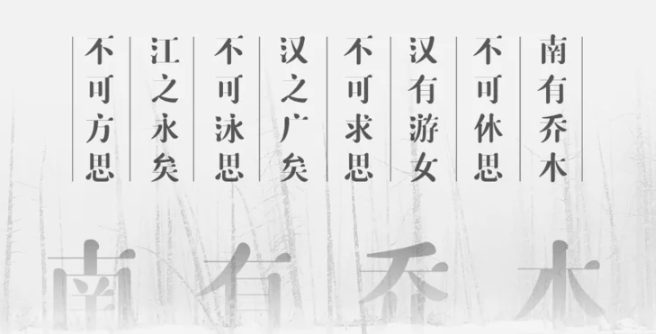 南有乔木
不可休思
汉有游女
不可求思
汉之广矣
不可泳思
江之永矣
不可方思
南有乔木